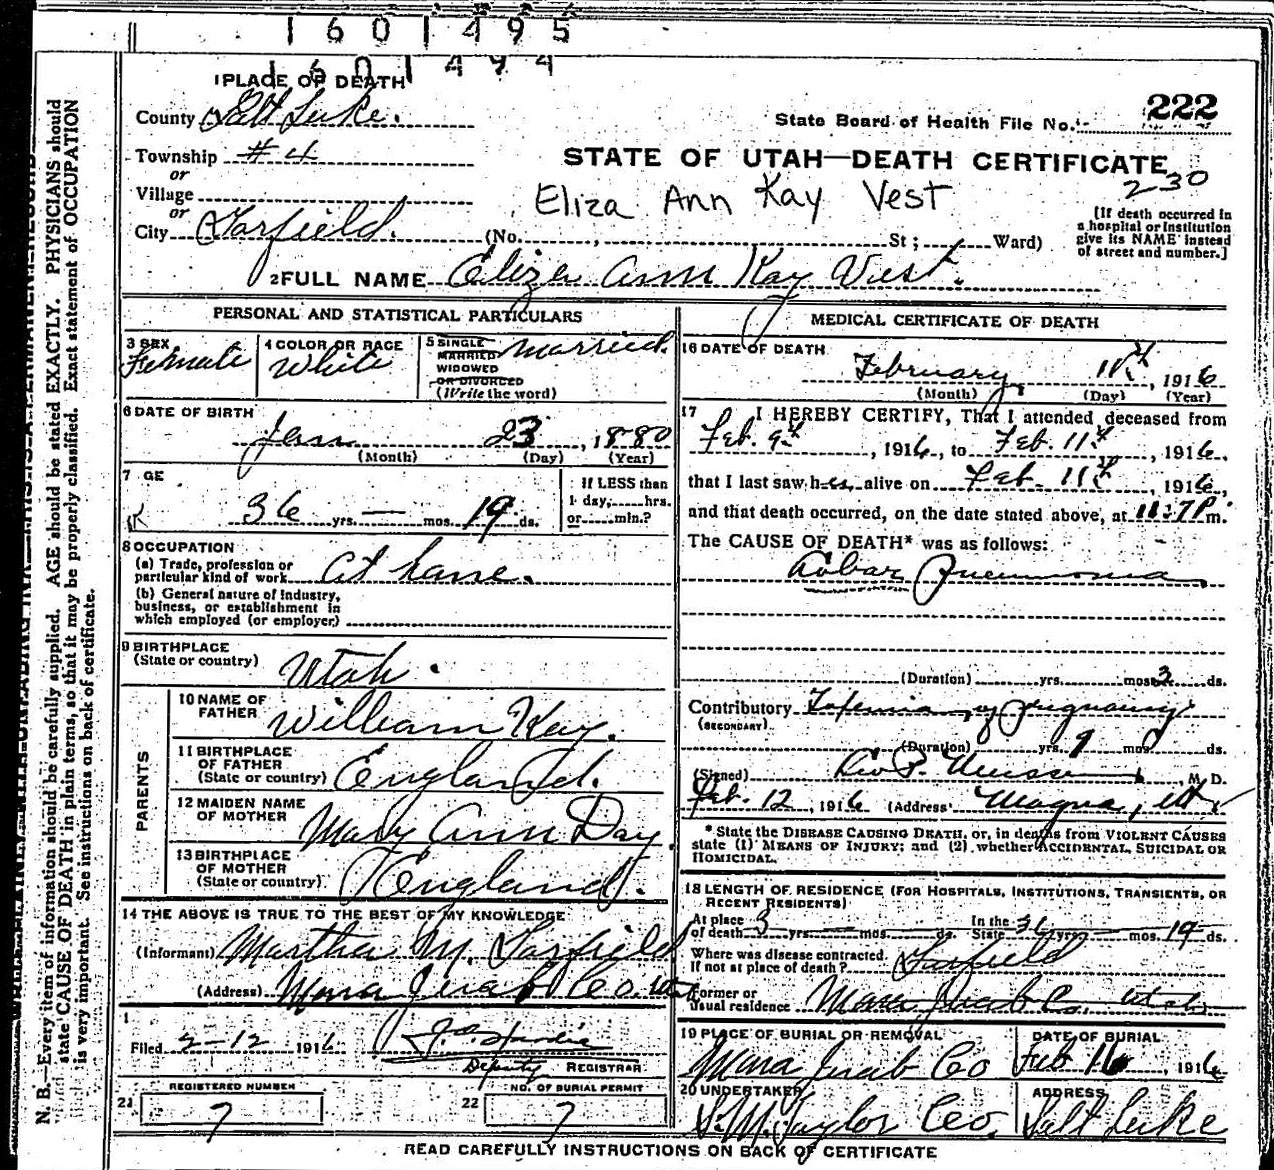 1601495
1601494
1 PLACE OF DEATH
County Salt Lake.
State Board of Health File No. 222
Township #4
STATE OF UTAH—DEATH CERTIFICATE
or
Village
Eliza Ann Kay Vest
230
or
City Garfield. (No. , St ; Ward)
[If death occurred in a hospital or institution give its NAME instead of street and number.]
2 FULL NAME Eliza Ann Kay Vest.
PERSONAL AND STATISTICAL PARTICULARS
3 SEX Female
4 COLOR OR RACE White
5 SINGLE MARRIED WIDOWED OR DIVORCED (Write the word) married.
6 DATE OF BIRTH
Jan 23, 1880
(Month) (Day) (Year)
7 GE
36 yrs. — mos. 19 ds.
If LESS than 1 day, hrs. or min.?
8 OCCUPATION
(a) Trade, profession or particular kind of work At home.
(b) General nature of industry, business, or establishment in which employed (or employer)
9 BIRTHPLACE
(State or country) Utah.
PARENTS
10 NAME OF FATHER William Kay.
11 BIRTHPLACE OF FATHER (State or country) England.
12 MAIDEN NAME OF MOTHER Mary Ann Day.
13 BIRTHPLACE OF MOTHER (State or country) England.
14 THE ABOVE IS TRUE TO THE BEST OF MY KNOWLEDGE
(Informant) Martha M. Garfield
(Address) Mona Juab Co. Utah
Filed 2-12 1916
Deputy REGISTRAR
REGISTERED NUMBER
21 7
NO. OF BURIAL PERMIT
22 7
MEDICAL CERTIFICATE OF DEATH
16 DATE OF DEATH
February 11th, 1916
(Month) (Day) (Year)
17 I HEREBY CERTIFY, That I attended deceased from
Feb. 9th, 1916, to Feb. 11th, 1916,
that I last saw her alive on Feb. 11th, 1916,
and that death occurred, on the date stated above, at 11:37 P m.
The CAUSE OF DEATH* was as follows:
Lobar Pneumonia
(Duration) yrs. mos. 3 ds.
Contributory Toxemia of pregnancy
(SECONDARY)
(Duration) yrs. 9 mos ds.
(Signed) M. D.
Feb. 12, 1916 (Address) Magna, Ut
* State the DISEASE CAUSING DEATH, or, in deaths from VIOLENT CAUSES
state (1) MEANS OF INJURY; and (2) whether ACCIDENTAL, SUICIDAL OR
HOMICIDAL.
18 LENGTH OF RESIDENCE (FOR HOSPITALS, INSTITUTIONS, TRANSIENTS, OR
RECENT RESIDENTS)
At place of death 3 yrs. — mos. — ds. In the State 36 yrs. — mos. 19 ds.
Where was disease contracted. If not at place of death? Garfield
Former or usual residence Mona Juab Co. Utah
19 PLACE OF BURIAL OR REMOVAL
Mona Juab Co
DATE OF BURIAL
Feb 16, 1916
20 UNDERTAKER
S. M. Taylor Co.
ADDRESS
Salt Lake
READ CAREFULLY INSTRUCTIONS ON BACK OF CERTIFICATE
N. B.—Every item of information should be carefully supplied. AGE should be stated EXACTLY. PHYSICIANS should
state CAUSE OF DEATH in plain terms, so that it may be properly classified. Exact statement of OCCUPATION
is very important. See instructions on back of certificate.